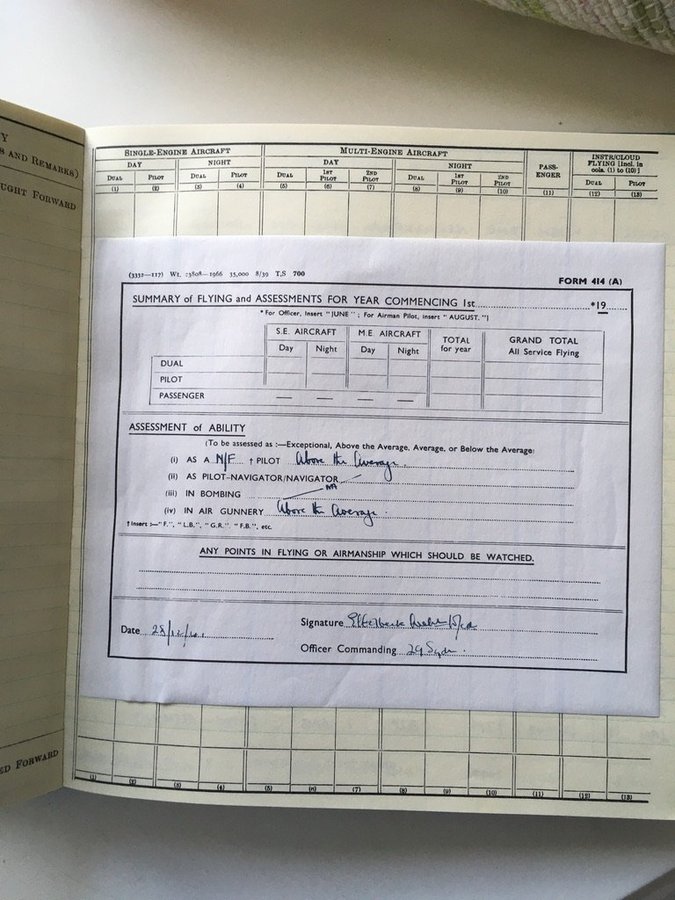 Y
S AND REMARKS)
UGHT FORWARD
ED FORWARD
SINGLE-ENGINE AIRCRAFT MULTI-ENGINE AIRCRAFT
DAY NIGHT DAY NIGHT PASS-ENGER INSTR/CLOUD FLYING [Incl. in cols. (1) to (10)]
DUAL PILOT DUAL PILOT DUAL 1ST PILOT 2ND PILOT DUAL 1ST PILOT 2ND PILOT DUAL PILOT
(1) (2) (3) (4) (5) (6) (7) (8) (9) (10) (11) (12) (13)
(3332—117) Wt. 23808—1966 35,000 8/39 T.S 700
FORM 414 (A)
SUMMARY of FLYING and ASSESSMENTS FOR YEAR COMMENCING 1st *19
* For Officer, Insert "JUNE"; For Airman Pilot, insert "AUGUST."]
S.E. AIRCRAFT M.E. AIRCRAFT TOTAL for year GRAND TOTAL All Service Flying
Day Night Day Night
DUAL
PILOT
PASSENGER — — — —
ASSESSMENT of ABILITY
(To be assessed as :—Exceptional, Above the Average, Average, or Below the Average)
(i) AS A N/F † PILOT Above the Average.
(ii) AS PILOT-NAVIGATOR/NAVIGATOR
(iii) IN BOMBING NA
(iv) IN AIR GUNNERY Above the Average.
† Insert :—"F.", "L.B.", "G.R." "F.B.", etc.
ANY POINTS IN FLYING OR AIRMANSHIP WHICH SHOULD BE WATCHED.
Signature
Date 28/12/41
Officer Commanding 29 Sqdn.
(1) (2) (3) (4) (5) (6) (7) (8) (9) (10) (11) (12) (13)